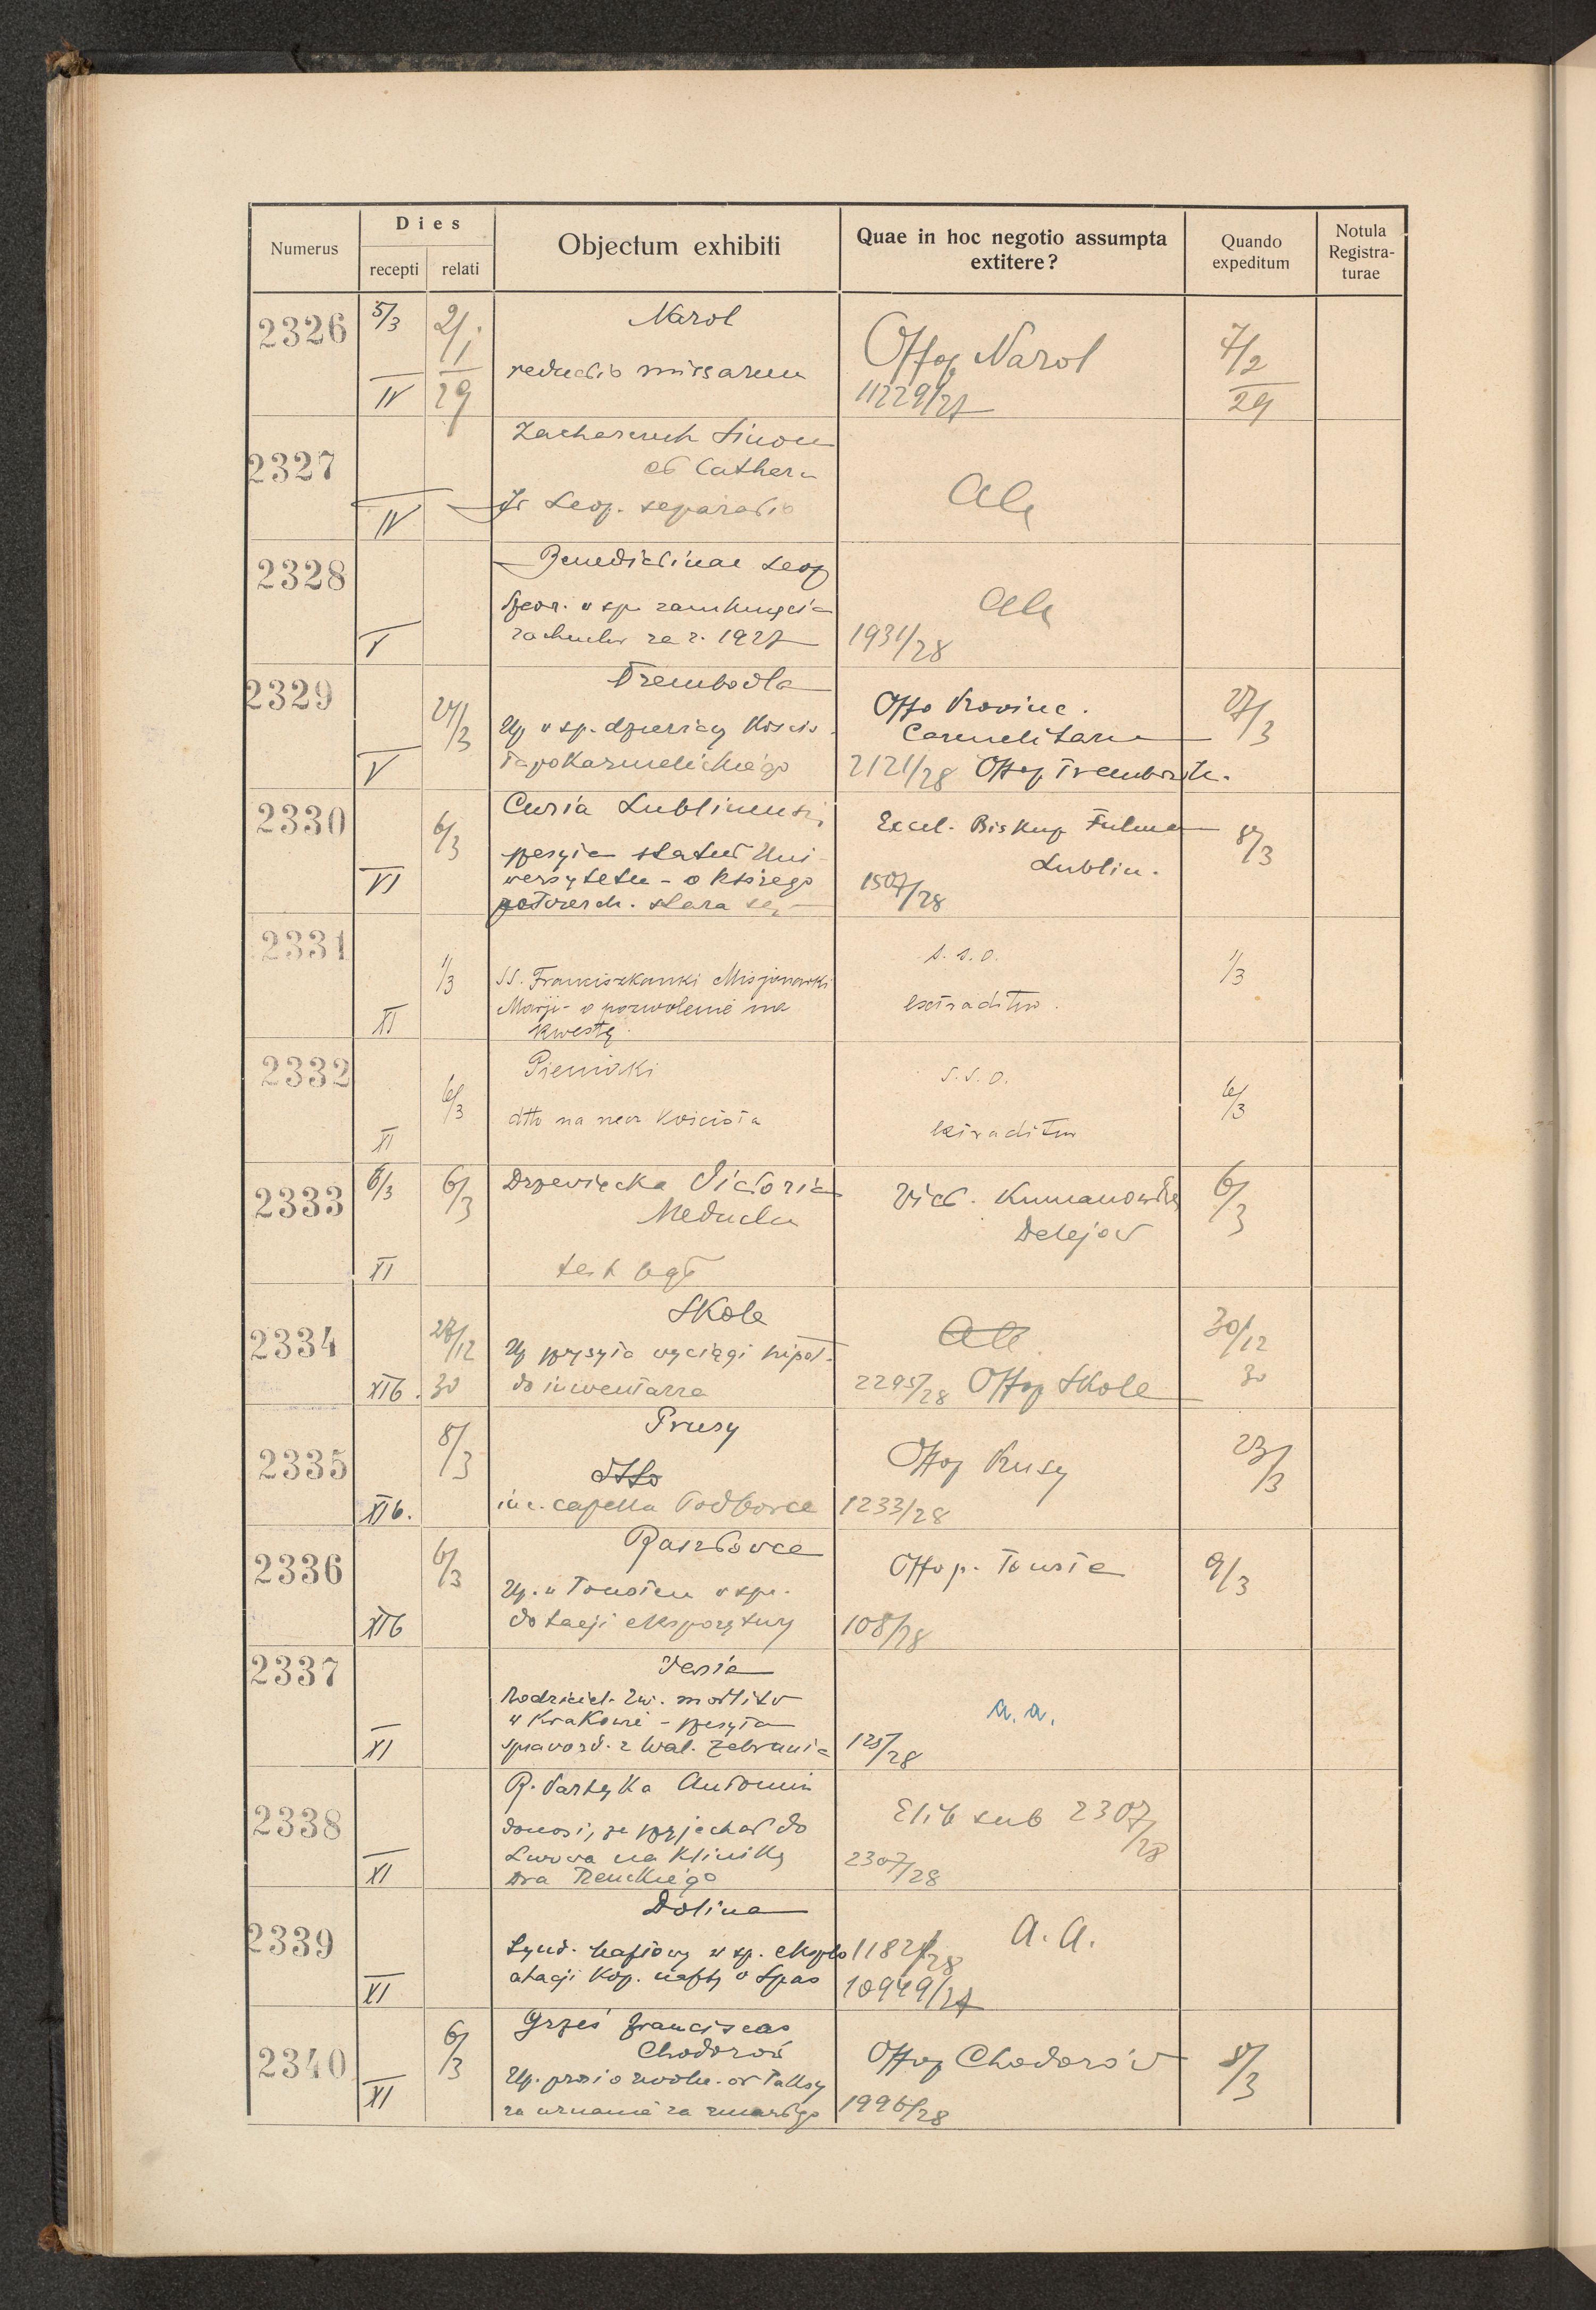 Numerus
Dies
recepti
relati
Objectum exhibiti
Quae in hoc negotio assumpta
extitere?
Quando
expeditum
Notula
Registra-
turae
2326
5/3
2/1
29
IV
Narol
reductio missarum
Offop Narol
11229/27
7/2
29
2327
IV
et Cathar
Leop. separatio
2328
V
Benedictinae Leop
w sp. zamknięcia
rachunków za r. 1927
1931/28
2329
V
27/3
Trembowla
Up w sp. dzierżawy kościo-
ła pokarmelickiego
Offo Provinc.
Carmelitarum
2121/28 Offop Trembowla
27/3
2330
VI
6/3
Curia Lublinensis
przesyła statut Uni-
wersytetu - o którego
potwierdz. stara się
Excel. Biskup Fulman
Lublin.
1507/28
8/3
2331
XI
1/3
SS. Franciszkanki Misjonarki
Marji - o pozwolenie na
kwestę.
s.s.o.
extraditur.
1/3
2332
XI
6/3
Pieniaki
dtto na rzecz kościoła
s.s.o.
extraditur
6/3
2333
6/3
6/3
XI
Drzewiecka Victoria
Meducha
Vict. Kumanowska
Delejow
6/3
2334
XIb.
28/12
30
Skole
Up przysyła wyciągi hipot.
do inwentarza
2295/28 Offop Skole
30/12
30
2335
XIb.
8/3
Prusy
dtto
inc. capella Podborce
Offop Prusy
1233/28
23/3
2336
XIb
6/3
Rasztowce
Up. w Toustem w spr.
dotacji ekspozytury
Offop. Touste
108/28
9/3
2337
XI
Varia
Rodziciel. Zw. modlitw
w Krakowie - przesyła
sprawozd. z Wal. Zebrania
125/28
a.a.
2338
XI
R. Partyka Antonin
donosi, że przyjechał do
Lwowa na Klinikę
Dra Renckiego
Elib sub 2307/28
2307/28
2339
XI
Dolina
Synd. naftowy w sp. eksplo
atacji kop. nafty w Spas
1182/28
10949/27
A.A.
2340
XI
6/3
Grześ Franciscus
Chodorów
Up. prosi o zwoln. od taksy
za uznanie za zmarłego
Offop Chodorów
1996/28
8/3